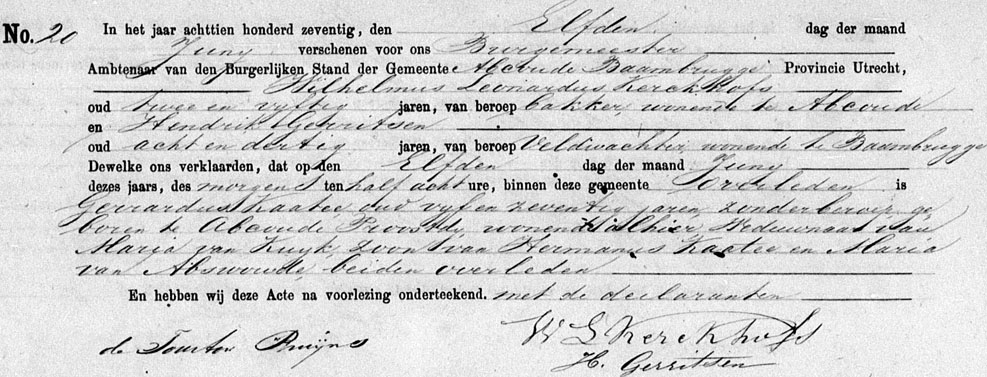 No. 20 In het jaar achttien honderd zeventig, den Elfden dag der maand
Juny verschenen voor ons Burgemeester
Ambtenaar van den Burgerlijken Stand der Gemeente Abcoude Baambrugge Provincie Utrecht,
Wilhelmus Leonardus Kerckhofs
oud twee en vyftig jaren, van beroep bakker, wonende te Abcoude
en Hendrik Gerritsen
oud acht en dertig jaren, van beroep Veldwachter, wonende te Baambrugge
Dewelke ons verklaarden, dat op den Elfden dag der maand Juny
dezes jaars, des morgens ten half acht ure, binnen deze gemeente Overleden is
Gerrardus Kaatee, oud vyf en zeventig jaren, zonder beroep, ge
boren te Abcoude Proostdy, wonende alhier, Weduwnaar van
Maria van Kuyk, zoon van Hermanus Kaatee en Maria
van Abswoude, beiden overleden
En hebben wij deze Acte na voorlezing onderteekend. met de declaranten
de Tourton Bruyns
W L Kerckhofs
H. Gerritsen